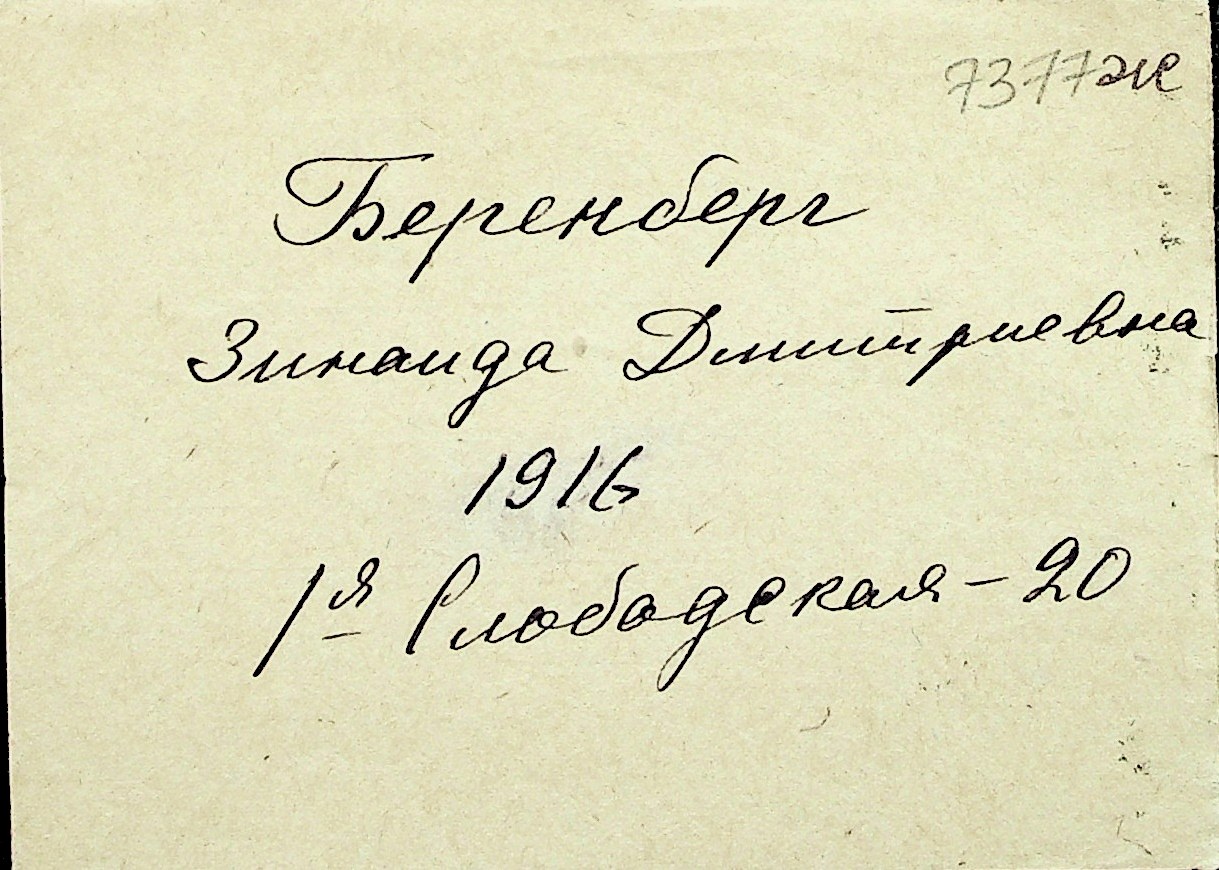 7377ж
Беренберг
Зинаида Дмитриевна
1916
1я Слободская - 20